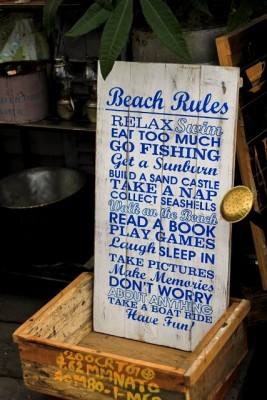 Beach Rules
RELAX Swim
EAT TOO MUCH
GO FISHING
Get a Sunburn
BUILD A SAND CASTLE
TAKE A NAP
COLLECT SEASHELLS
Walk on the Beach
READ A BOOK
PLAY GAMES
Laugh SLEEP IN
TAKE PICTURES
Make Memories
DON'T WORRY
ABOUT ANYTHING
TAKE A BOAT RIDE
Have Fun!
7.62 MM NATO